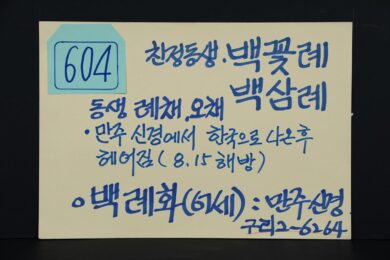 604
친정동생. 백꽃례
백삼례
동생 례채, 오채
• 만주 신경에서 한국으로 나온후
헤어짐 (8.15 해방)
○ 백례화(61세) : 만주신경
구리2-6264